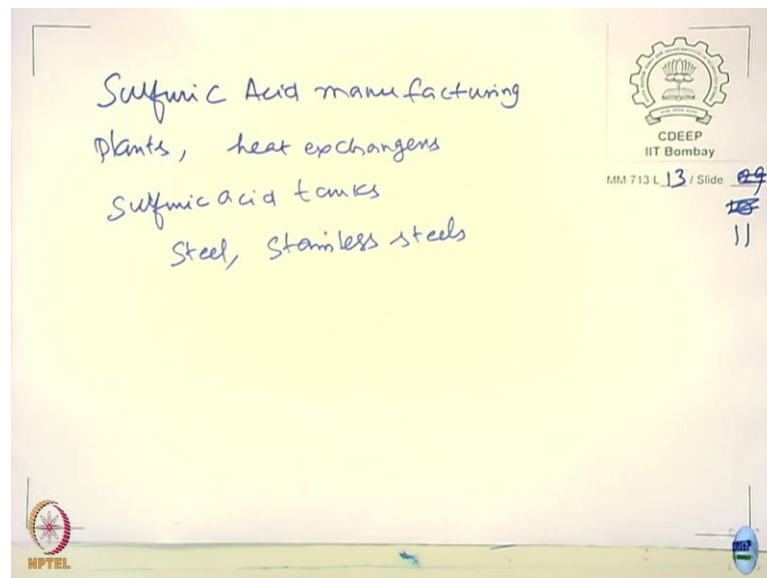 Sulfuric Acid manufacturing
Plants, heat exchangers
Sulfuric acid tanks
Steel, Stainless steels
CDEEP
IIT Bombay
MM 713 L 13 / Slide
11
NPTEL